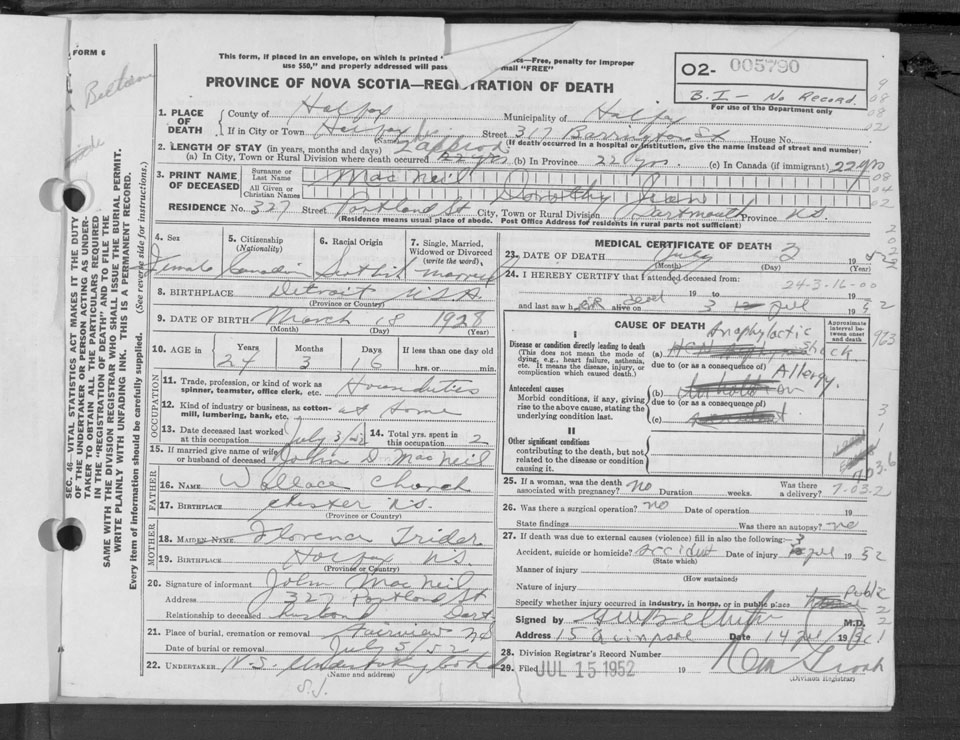 FORM 6
This form, if placed in an envelope, on which is printed
es—Free, penalty for improper
use $50," and properly addressed will pass
mail "FREE"
PROVINCE OF NOVA SCOTIA—REGISTRATION OF DEATH
O2- 005790
B.I - No Record.
For use of the Department only
1. PLACE OF DEATH
County of Halifax Municipality of Halifax
If in City or Town Halifax Street 317 Barrington St House No.
(Name) (If death occurred in a hospital or institution, give the name instead of street and number)
2. LENGTH OF STAY (in years, months and days)
(a) In City, Town or Rural Division where death occurred 22 yrs (b) In Province 22 yrs. (c) In Canada (if immigrant) 22 yrs
3. PRINT NAME OF DECEASED
Surname or Last Name MacNeil
All Given or Christian Names Dorothy Jean
RESIDENCE No. 327 Street Portland St City, Town or Rural Division Dartmouth Province N.S.
(Residence means usual place of abode. Post Office Address for residents in rural parts not sufficient)
4. Sex Female
5. Citizenship (Nationality) Canadian
6. Racial Origin Scottish
7. Single, Married, Widowed or Divorced (write the word) Married
8. BIRTHPLACE Detroit U.S.A.
(Province or Country)
9. DATE OF BIRTH March 18 1928
(Month) (Day) (Year)
10. AGE in Years 24 Months 3 Days 16 If less than one day old hrs. or min.
OCCUPATION
11. Trade, profession, or kind of work as spinner, teamster, office clerk, etc. House duties
12. Kind of industry or business, as cotton-mill, lumbering, bank, etc. at home
13. Date deceased last worked at this occupation July 3/52
14. Total yrs. spent in this occupation 2
15. If married give name of wife or husband of deceased John D. MacNeil
FATHER
16. NAME Wallace Church
17. BIRTHPLACE Chester N.S.
(Province or Country)
MOTHER
18. MAIDEN NAME Florence Trider
19. BIRTHPLACE Halifax N.S.
(Province or Country)
20. Signature of informant John MacNeil
Address 327 Portland St
Relationship to deceased husband Dart.
21. Place of burial, cremation or removal Fairview
Date of burial or removal July 5/52
22. UNDERTAKER N.S. Undertaking
(Name and address)
S.J.
MEDICAL CERTIFICATE OF DEATH
23. DATE OF DEATH July 3 1952
(Month) (Day) (Year)
24. I HEREBY CERTIFY that I attended deceased from:
24-3-16-00
19 to 19
and last saw her dead alive on 3 Jul 1952
CAUSE OF DEATH
Approximate interval between onset and death
I
Disease or condition directly leading to death
(This does not mean the mode of dying, e.g., heart failure, asthenia, etc. It means the disease, injury, or complication which caused death.)
(a) Anaphylactic Shock
due to (or as a consequence of)
Antecedent causes
Morbid conditions, if any, giving rise to the above cause, stating the underlying condition last.
(b) Allergy.
due to (or as a consequence of)
(c)
II
Other significant conditions
contributing to the death, but not related to the disease or condition causing it.
25. If a woman, was the death associated with pregnancy? no Duration weeks. Was there a delivery?
7-03-2
26. Was there a surgical operation? no Date of operation 19
State findings Was there an autopsy? no
27. If death was due to external causes (violence) fill in also the following:—
Accident, suicide or homicide? accident Date of injury 3 Jul 1952
(State which)
Manner of injury
(How sustained)
Nature of injury
Specify whether injury occurred in industry, in home, or in public place Public
Signed by M.D.
Address 15 Date 14 Jul 19
28. Division Registrar's Record Number
29. Filed JUL 15 1952 19
(Division Registrar)
SEC. 46—VITAL STATISTICS ACT MAKES IT THE DUTY
OF THE UNDERTAKER OR PERSON ACTING AS UNDER-
TAKER TO OBTAIN ALL THE PARTICULARS REQUIRED
IN THE "REGISTRATION OF DEATH" AND TO FILE THE
SAME WITH THE DIVISION REGISTRAR WHO SHALL ISSUE THE BURIAL PERMIT.
WRITE PLAINLY WITH UNFADING INK. THIS IS A PERMANENT RECORD.
Every item of information should be carefully supplied. (See reverse side for instructions.)